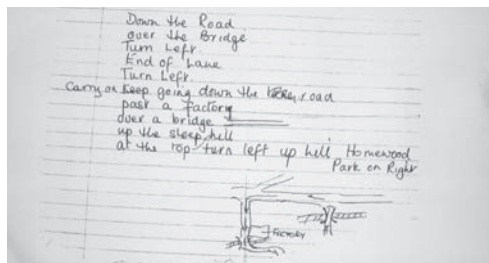 Down the Road
over the Bridge
Turn Left
End of Lane
Turn Left
Carry on Keep going down the road
past a Factory
over a bridge
up the steep hill
at the top turn left up hill Homewood
Park on Right
FACTORY